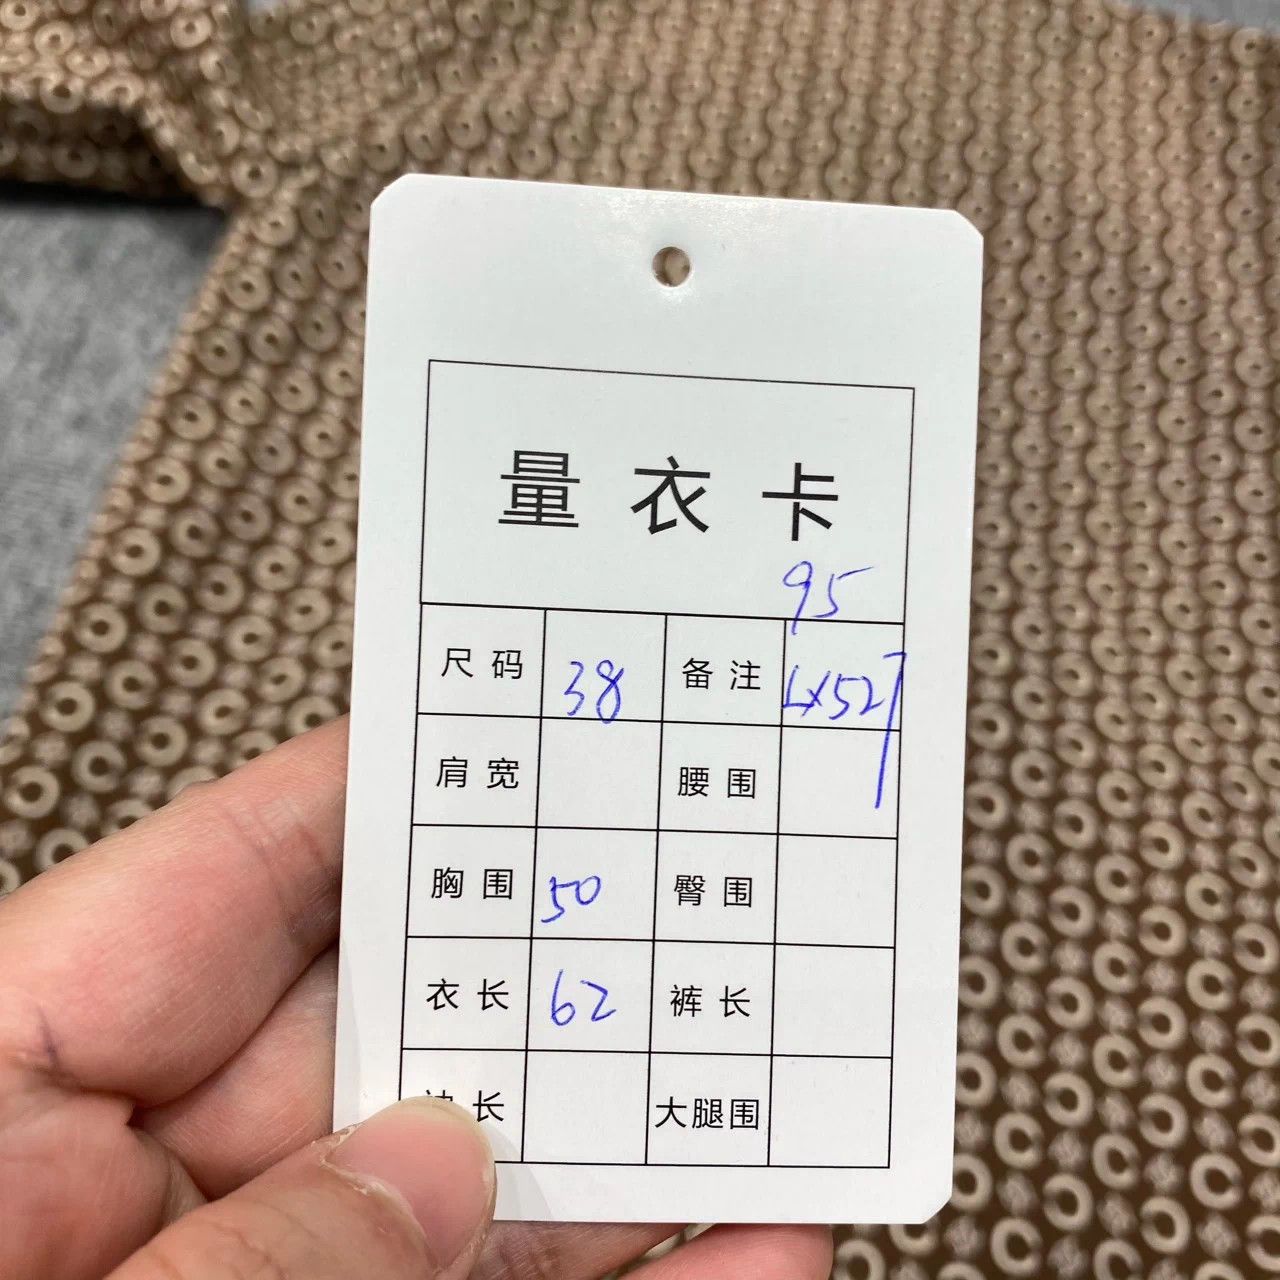 量衣卡
95
尺码 38 备注 LX527
肩宽 腰围
胸围 50 臀围
衣长 62 裤长
长 大腿围